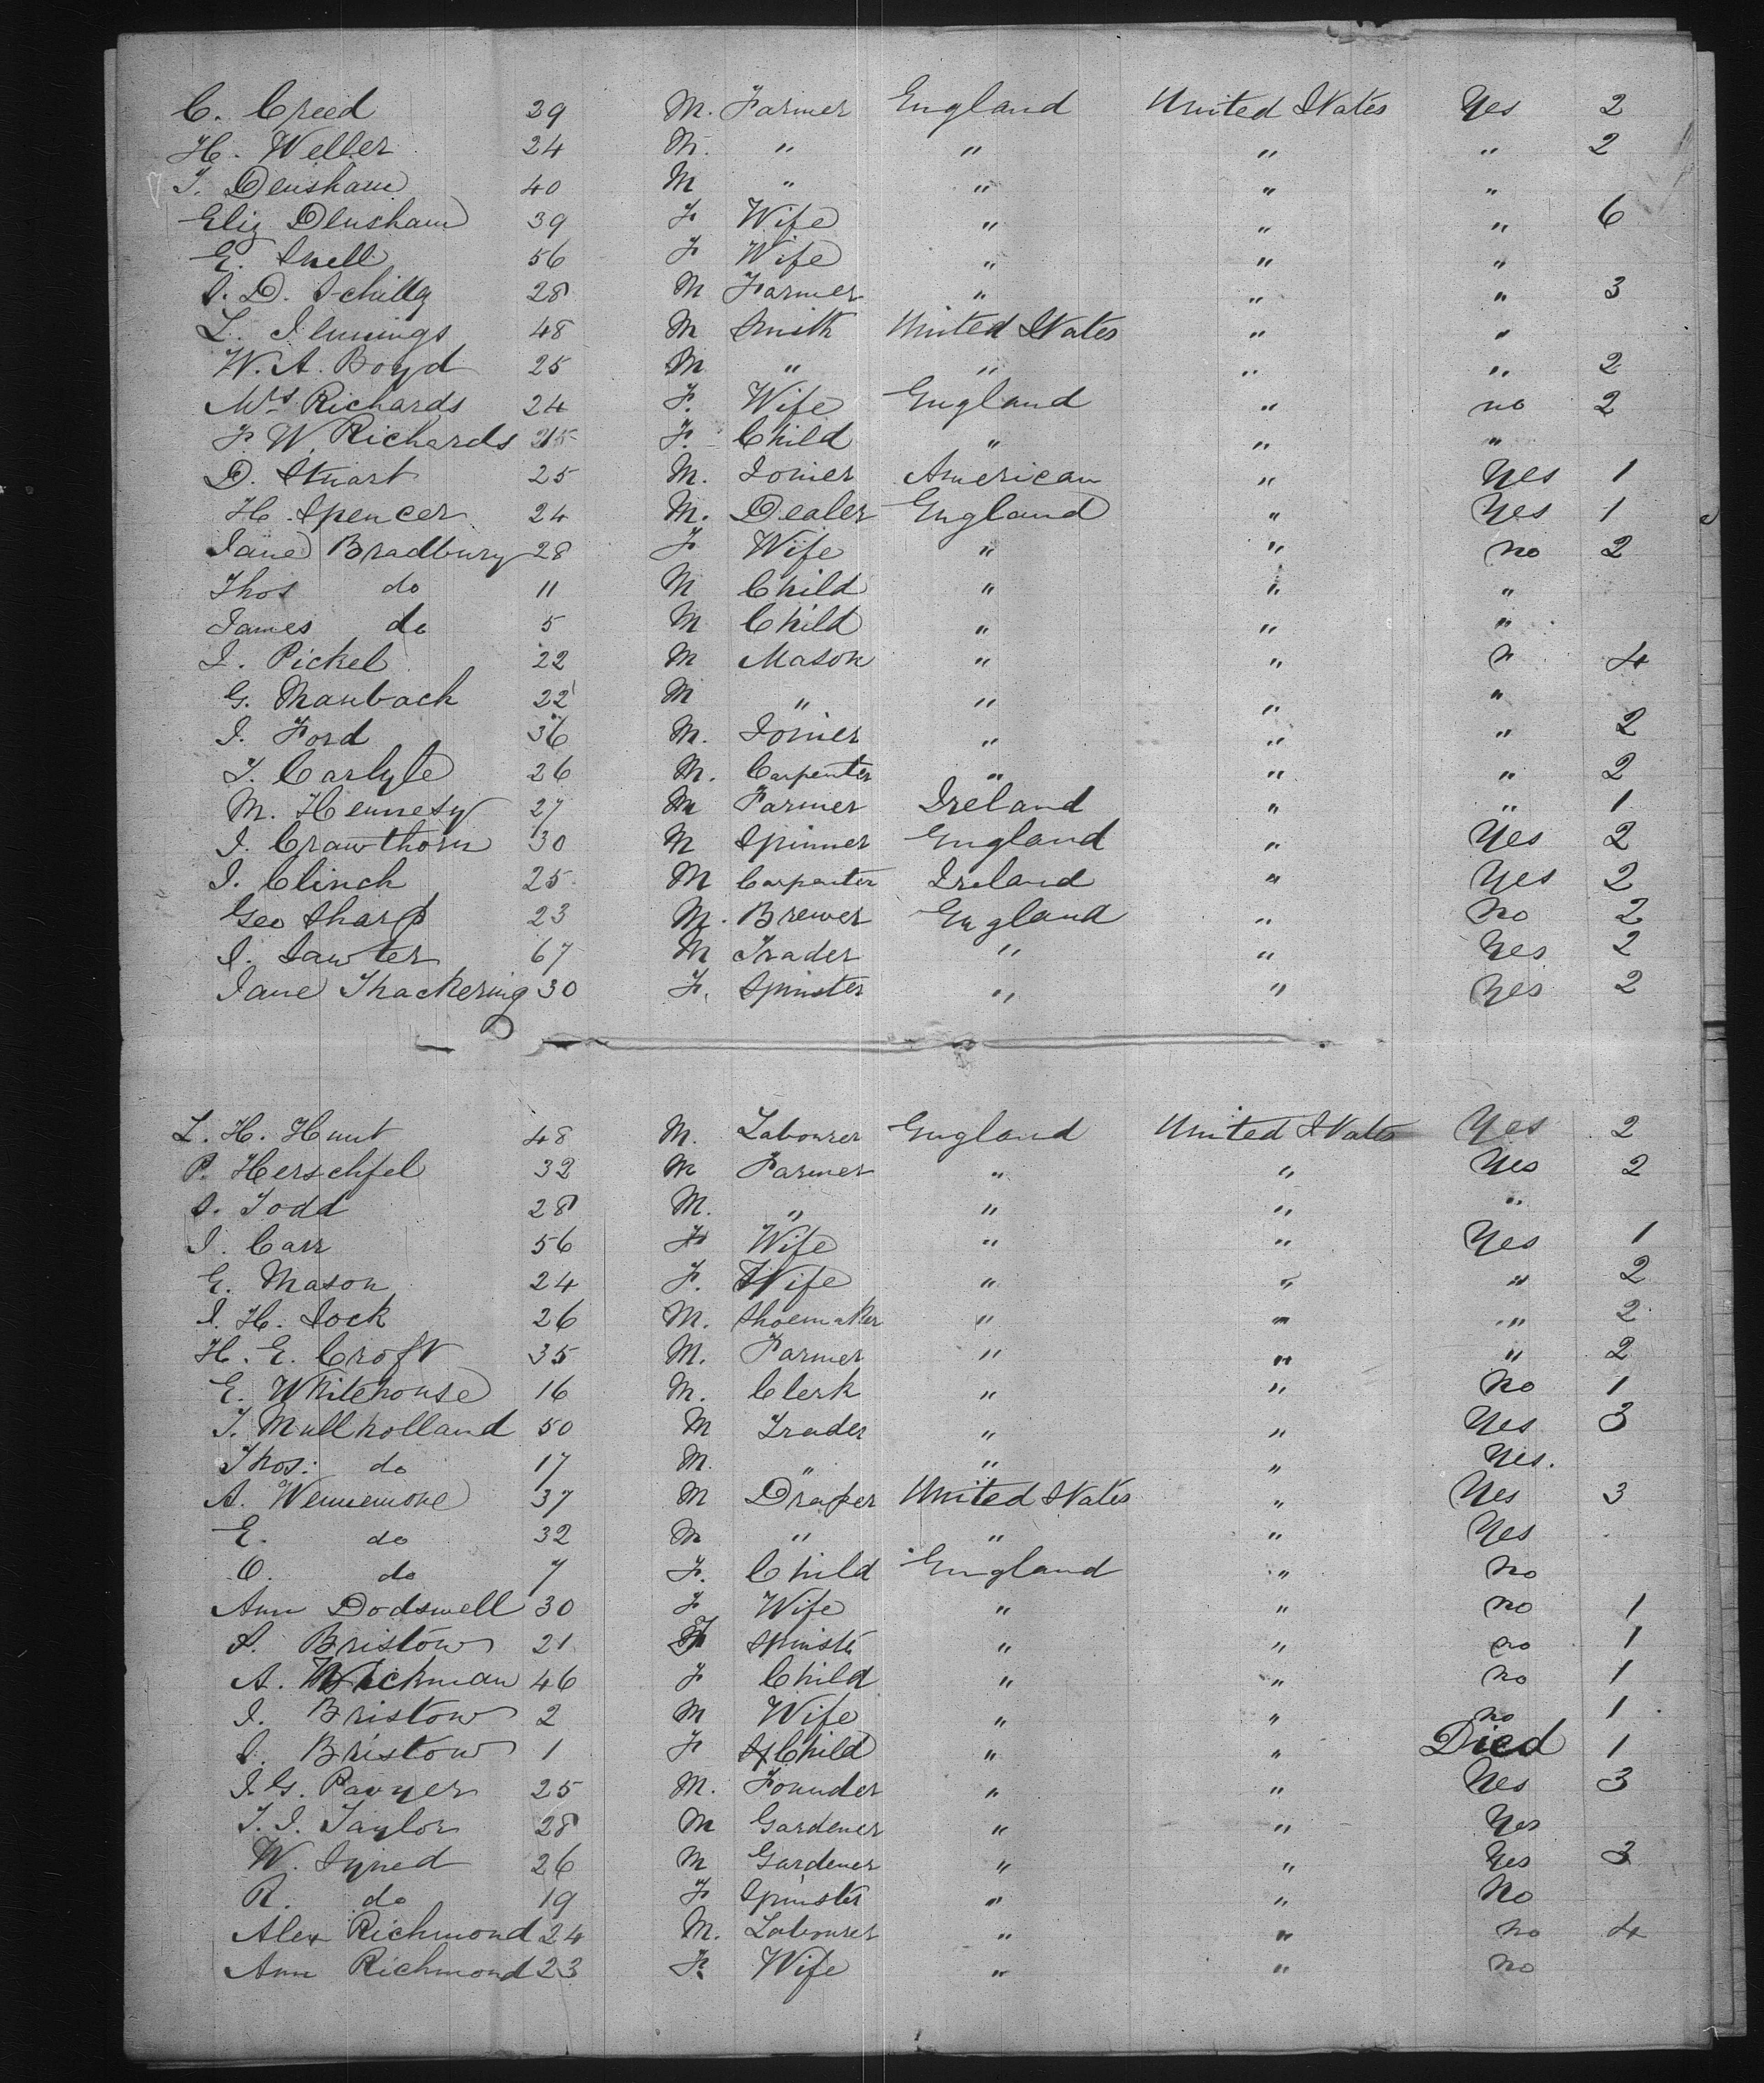 C. Creed 29 M. Farmer England United States Yes 2
H. Weller 24 M. " " " " 2
T. Densham 40 M " " " "
Eliz Densham 39 F Wife " " " 6
E. Snell 56 F Wife " " "
S. D. Schilly 28 M Farmer " " " 3
L. Jennings 48 M Smith United States " "
W. A. Boyd 25 M " " " " 2
Mrs Richards 24 F. Wife England " no 2
F. W. Richards F. Child " " "
D. Stuart 25 M. Joiner American " Yes 1
H. Spencer 24 M. Dealer England " Yes 1
Jane Bradbury 28 F Wife " " no 2
Thos do 11 M Child " " "
James do 5 M Child " " "
J. Pickel 22 M Mason " " " 4
G. Manbach 22 M " " " "
J. Ford 36 M. Joiner " " " 2
T. Carlyle 26 M. Carpenter " " " 2
M. Hennesy 27 M Farmer Ireland " " 1
J. Crawthorn 30 M Spinner England " Yes 2
J. Clinch 25 M Carpenter Ireland " Yes 2
Geo Sharp 23 M. Brewer England " No 2
J. Sawter 67 M Trader " " Yes 2
Jane Thackering 30 F. Spinster " " Yes 2
L. H. Hunt 48 M. Labourer England United States Yes 2
P. Herschfel 32 M Farmer " " Yes 2
S. Todd 28 M. " " " "
J. Carr 56 F Wife " " Yes 1
E. Mason 24 F. Wife " " " 2
J. H. Sock 26 M. Shoemaker " " " 2
H. E. Croft 35 M. Farmer " " " 2
E. Whitehouse 16 M. Clerk " " No 1
T. Mullholland 50 M Trader " " Yes 3
Thos: do 17 M. " " " Yes.
A. Wennemore 37 M Draper United States " Yes 3
E. do 32 M " " " Yes
O. do 7 F. Child England " No
Ann Dodswell 30 F Wife " " no 1
A. Bristow 21 F Spinster " " no 1
A. Wickman 46 F Child " " no 1
J. Bristow 2 M Wife " " no 1
S. Bristow 1 F Child " " Died 1
J. G. Pavyer 25 M. Founder " " Yes 3
T. J. Taylor 28 M Gardener " " Yes
W. Syned 26 M Gardener " " Yes 3
R. do 19 F Spinster " " No
Alex Richmond 24 M. Labourer " " no 4
Ann Richmond 23 F. Wife " " no